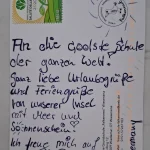 An die coolste Schule
der ganzen Welt!
Ganz liebe Urlaubsgrüße
und Feriengrüße
von unserer Insel
mit Meer und
Sonnenschein!
Ich freue mich auf